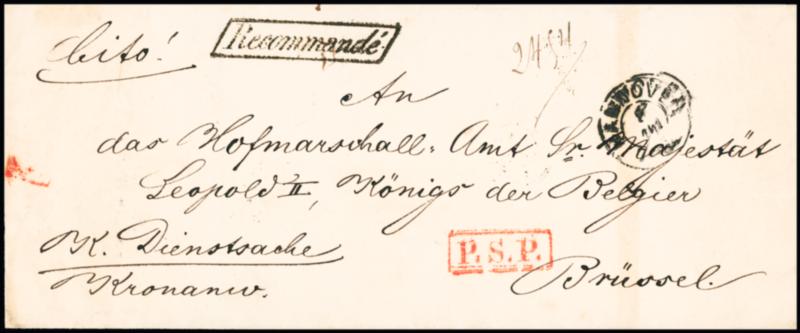 Cito!
Recommandé
An
HANNOVER
das Hofmarschall-Amt Sr. Majestät
Leopold II, Königs der Belgier
K. Dienstsache
P.S.P.
Kronanw.
Brüssel.